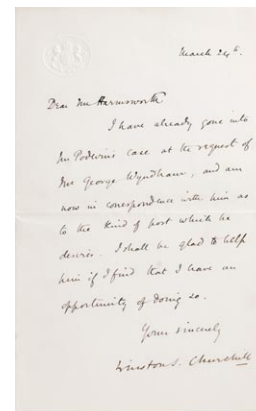 March 24th.
Dear Mr Harmsworth
I have already gone into
Mr Podevin's case at the request of
Mr George Wyndham, and am
now in correspondence with him as
to the kind of post which he
desires. I shall be glad to help
him if I find that I have an
opportunity of doing so.
Yours sincerely
Winston S. Churchill